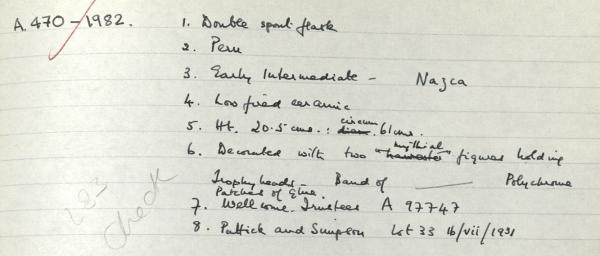 A. 470 - 1982.
1. Double spout flask
2. Peru
3. Early Intermediate - Nazca
4. Low fired ceramic
5. Ht. 20.5 cms. : diam. circum 61 cms.
6. Decorated with two harvester mythical figures holding
Trophy heads - Band of ——— Polychrome
Patches of Glue.
7. Wellcome Trustees A 97747
8. Puttick and Simpson Lot 33 16/vii/1931
L83
check